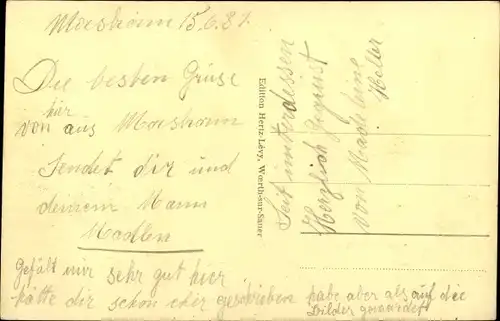 Morsbronn 15.6.31.
Die besten Grüse
hier
von aus Morsbronn
Sendet dir und
deinem Mann
Madlen
Gefält mir sehr gut hier
hätte dir schon eher geschrieben habe aber als auf die
Bilder gewartet
Edition Hertz-Lévy, Wœrth-sur-Sauer
Seit unterdessen
Herzlich Gegrüst
von Madeleine
Heller